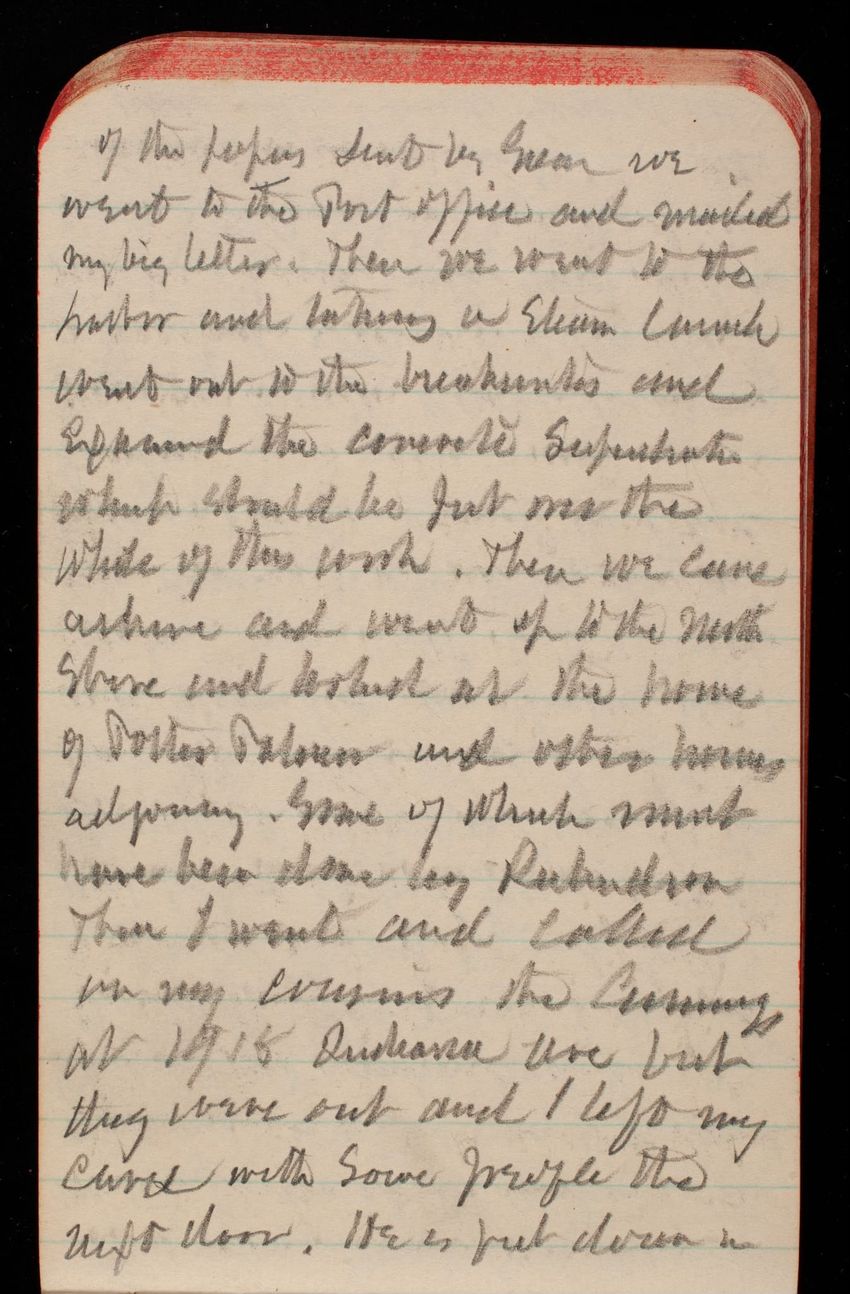 of the papers sent by Swan we
went to the Post office and mailed
my big letter. Then we went to the
harbor and taking a Steam Launch
went out to the breakwater and
Examined the concrete Superstructure
which should be put on the
whole of this work. Then we came
ashore and went up to the North
Shore and looked at the home
of Potter Palmer and other homes
adjoining. Some of which must
have been done by Richardson
Then I went and called
on my cousins the Cummings
at 1918 Indiana Ave but
they were out and I left my
card with some people the
next door. He is put down in